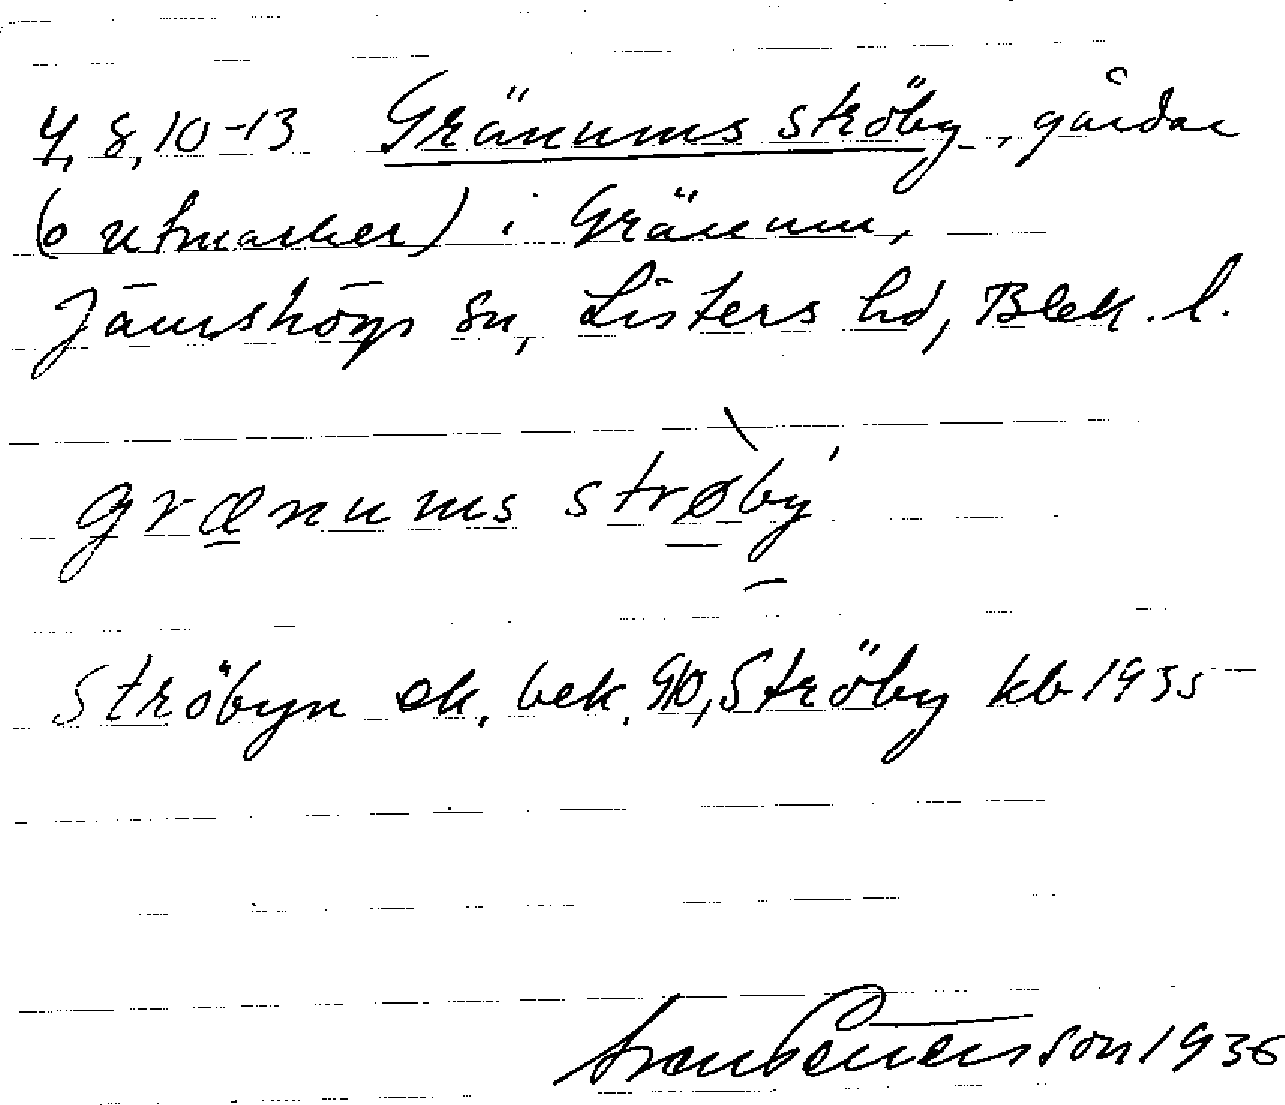 4, 8, 10-13 Gränums ströby, gårdar
(o utmarker) i Gränum,
Jämshögs sn, Listers hd, Blek. l.
grænums strøby
Ströbyn ek. bek. 910, Ströby kb 1935
1936